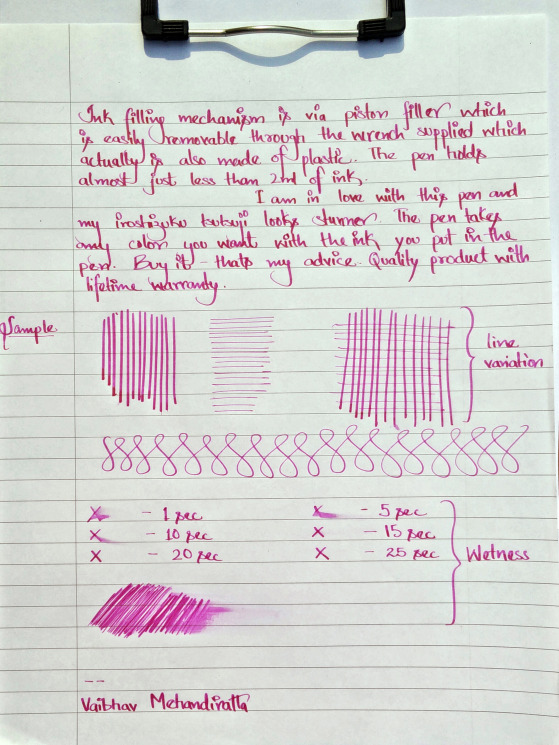 Ink filling mechanism is via piston filler which
is easily removable through the wrench supplied which
actually is also made of plastic. The pen holds
almost just less than 2ml of ink.
I am in love with this pen and
my Iroshizuku tsutsuji looks stunner. The pen takes
any color you want with the ink you put in the
pen. Buy it - thats my advice. Quality product with
lifetime warranty.
Sample
line
variation
X - 1 sec
X - 5 sec
X - 10 sec
X - 15 sec
X - 20 sec
X - 25 sec
Wetness
--
Vaibhav Mehandiratta